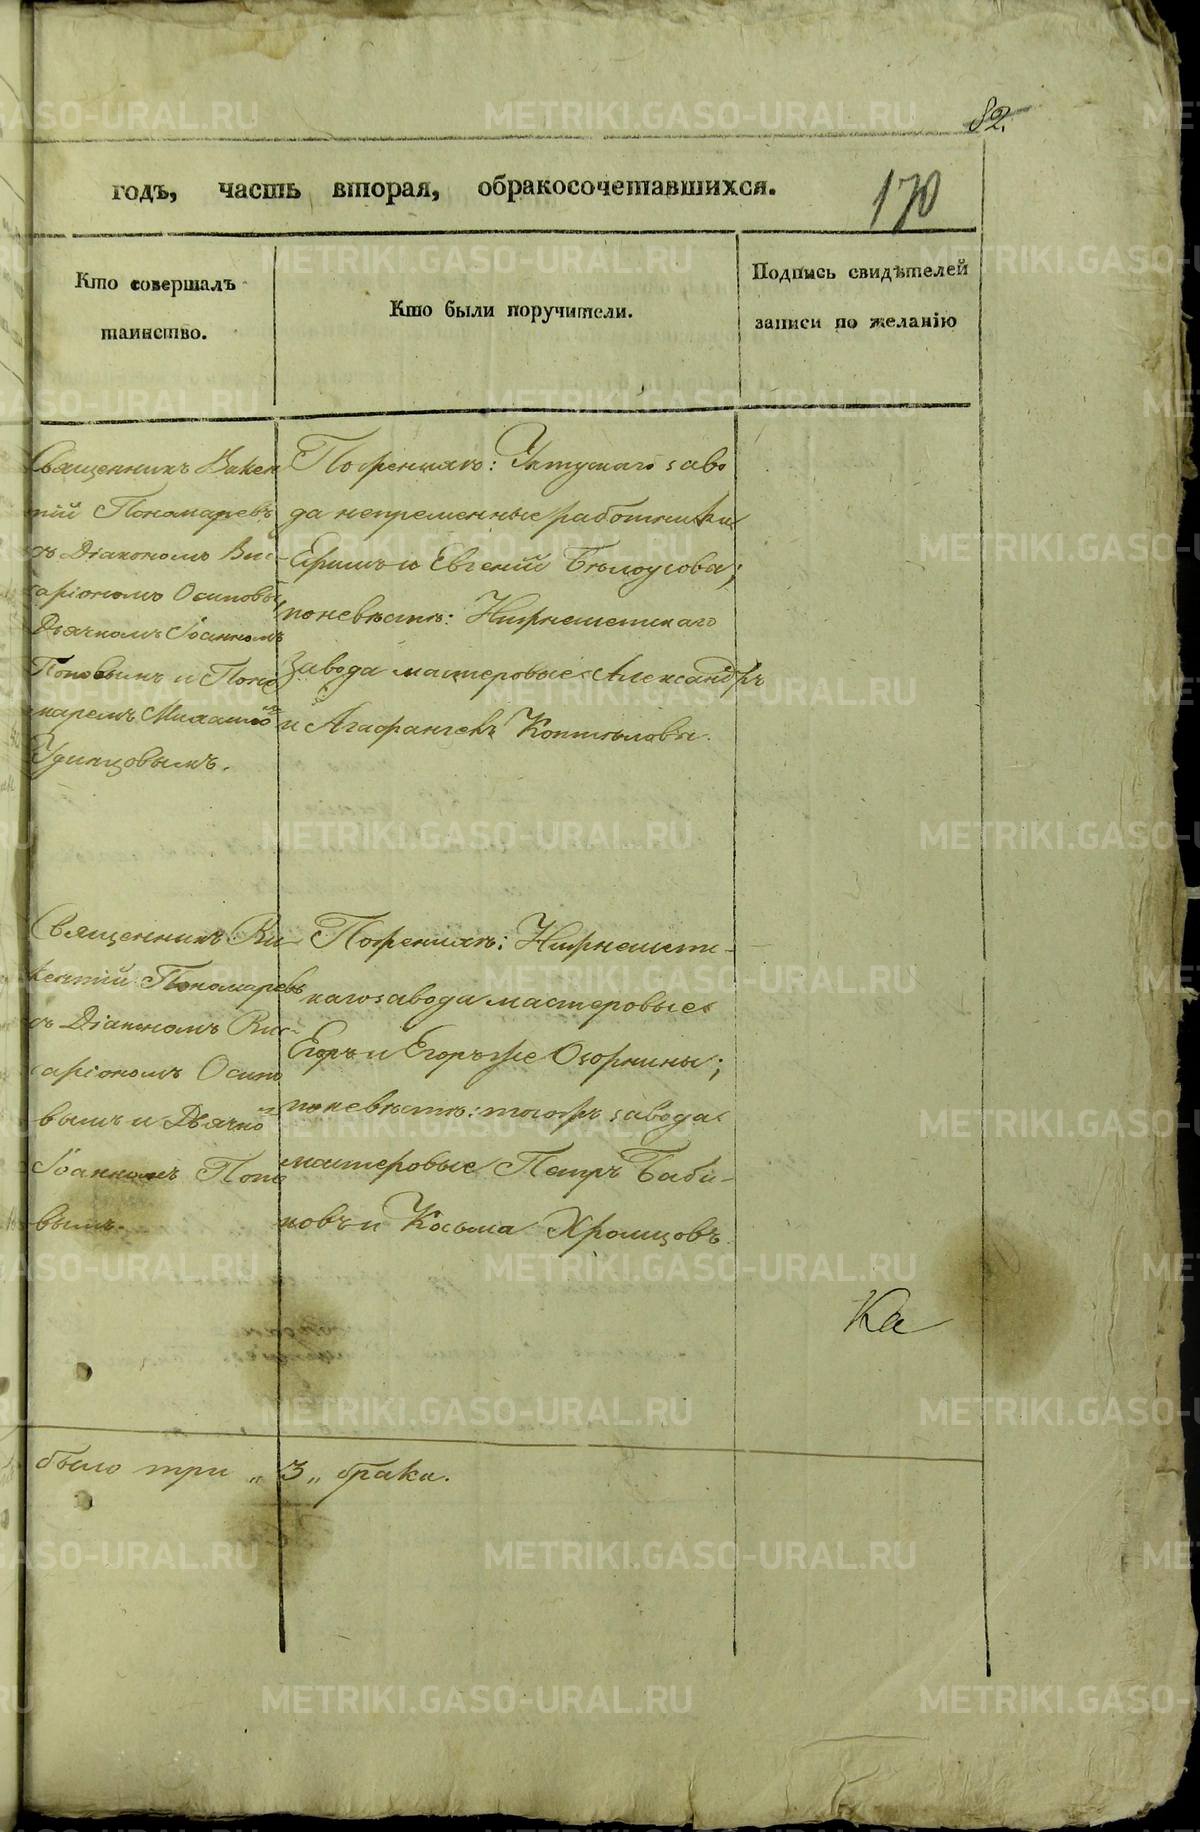 82.
годъ, часть вторая, обракосочетавшихся.
170
Кто совершалъ
таинство.
Кто были поручители.
Подпись свидѣтелей
записи по желанію
Священникъ Викен
тій Пономаревъ
съ Діакономъ Вис-
саріономъ Осиповы
Дьячкомъ Іоанномъ
Поповымъ и Поно
маремъ Михаило
Удинцовымъ.
По женихѣ: Уктускаго заво
да непременные работники
Ефимъ и Евгеній Бѣлоусова;
по невѣстѣ: Нижнеисетскаго
завода мастеровые Александръ
и Агафангелъ Коптѣловы.
Священникъ Ви-
кентій Пономаревъ
съ Діакономъ Вис-
саріономъ Осипо
вымъ и Дьячко
Іоанномъ Попо
вымъ.
По женихѣ: Нижнеисет-
скаго завода мастеровые
Егоръ и Егоръ же Озорнины;
по невѣстѣ: тогожъ завода
мастеровые Петръ Баби-
ковъ и Косьма Хромцовъ
Ка
было три „3„ брака.
METRIKI.GASO-URAL.RU